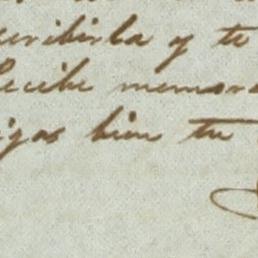 escribirla y te
Recibe memor
igas bien tu